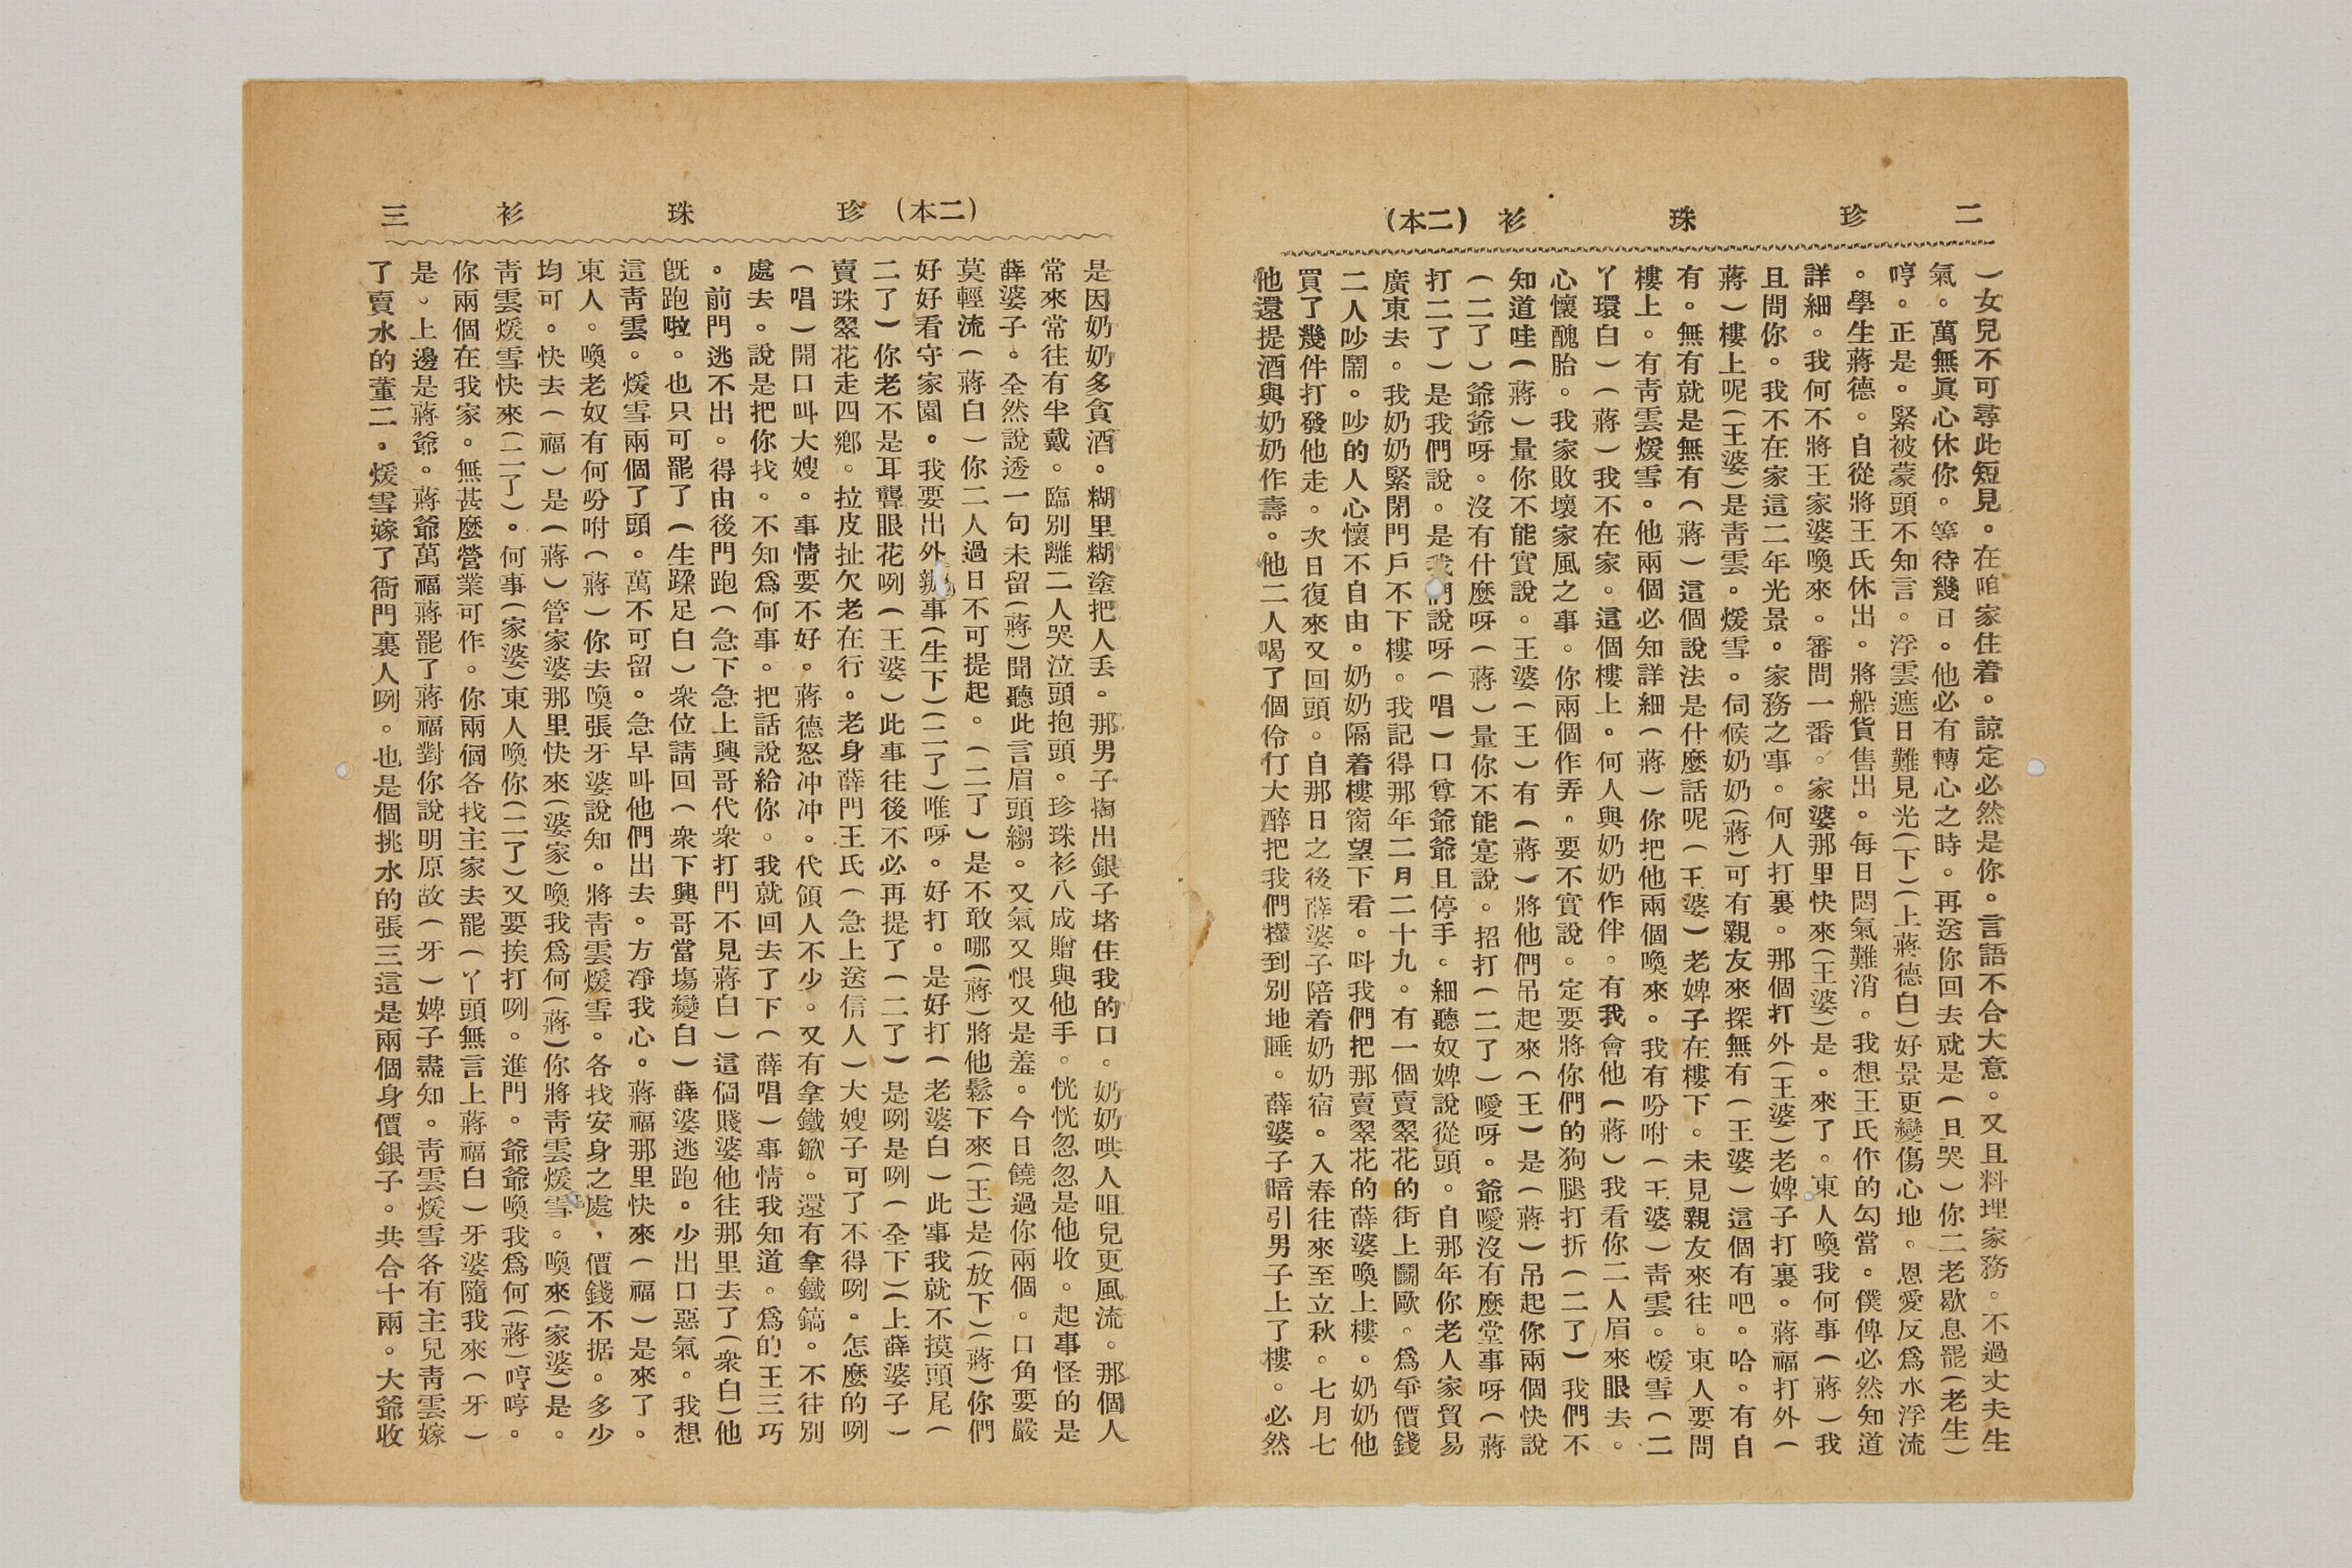 二 珍 珠 衫 (二本)
)女兒不可尋此短見。在咱家住着。諒定必然是你。言語不合大意。又且料理家務。不過丈夫生
氣。萬無眞心休你。等待幾日。他必有轉心之時。再送你回去就是(旦哭)你二老歇息罷(老生)
哼。正是。緊被蒙頭不知言。浮雲遮日難見光(下)(上蔣德白)好景更變傷心地。恩愛反爲水浮流
。學生蔣德。自從將王氏休出。將船貨售出。每日悶氣難消。我想王氏作的勾當。僕俾必然知道
詳細。我何不將王家婆喚來。審問一番。家婆那里快來(王婆)是。來了。東人喚我何事(蔣)我
且問你。我不在家這二年光景。家務之事。何人打裏。那個打外(王婆)老婢子打裏。蔣福打外(
蔣)樓上呢(王婆)是靑雲。煖雪。伺候奶奶(蔣)可有親友來探無有(王婆)這個有吧。哈。有自
有。無有就是無有(蔣)這個說法是什麼話呢(王婆)老婢子在樓下。未見親友來往。東人要問
樓上。有靑雲煖雪。他兩個必知詳細(蔣)你把他兩個喚來。我有吩咐(王婆)靑雲。煖雪(二
丫環白)(蔣)我不在家。這個樓上。何人與奶奶作伴。有我會他(蔣)我看你二人眉來眼去。
心懷醜胎。我家敗壞家風之事。你兩個作弄。要不實說。定要將你們的狗腿打折(二了)我們不
知道哇(蔣)量你不能實說。王婆(王)有(蔣)將他們吊起來(王)是(蔣)吊起你兩個快說
(二了)爺爺呀。沒有什麼呀(蔣)量你不能寔說。招打(二了)噯呀。爺噯沒有麼堂事呀(蔣
打二了)是我們說。是我們說呀(唱)口尊爺爺且停手。細聽奴婢說從頭。自那年你老人家貿易
廣東去。我奶奶緊閉門戶不下樓。我記得那年二月二十九。有一個賣翠花的街上鬭歐。爲爭價錢
二人吵鬧。吵的人心懷不自由。奶奶隔着樓窗望下看。呌我們把那賣翠花的薛婆喚上樓。奶奶他
買了幾件打發他走。次日復來又回頭。自那日之後薛婆子陪着奶奶宿。入春往來至立秋。七月七
他還提酒與奶奶作壽。他二人喝了個伶仃大醉把我們攆到別地睡。薛婆子暗引男子上了樓。必然
(二本) 珍 珠 衫 三
是因奶奶多貪酒。糊里糊塗把人丟。那男子掏出銀子堵住我的口。奶奶哄人咀兒更風流。那個人
常來常往有半戴。臨別離二人哭泣頭抱頭。珍珠衫八成贈與他手。恍恍忽忽是他收。起事怪的是
薛婆子。全然說透一句未留(蔣)聞聽此言眉頭縐。又氣又恨又是羞。今日饒過你兩個。口角要嚴
莫輕流(蔣白)你二人過日不可提起。(二了)是不敢哪(蔣)將他鬆下來(王)是(放下)(蔣)你們
好好看守家園。我要出外辦事(生下)(二了)唯呀。好打。是好打(老婆白)此事我就不摸頭尾(
二了)你老不是耳聾眼花咧(王婆)此事往後不必再提了(二了)是咧是咧(全下)(上薛婆子)
賣珠翠花走四鄕。拉皮扯欠老在行。老身薛門王氏(急上送信人)大嫂子可了不得咧。怎麼的咧
(唱)開口叫大嫂。事情要不好。蔣德怒冲冲。代領人不少。又有拿鐵鍁。還有拿鐵鎬。不往別
處去。說是把你找。不知爲何事。把話說給你。我就回去了下(薛唱)事情我知道。爲的王三巧
。前門逃不出。得由後門跑(急下急上興哥代衆打門不見蔣白)這個賤婆他往那里去了(衆白)他
旣跑啦。也只可罷了(生蹂足白)衆位請回(衆下興哥當塲變白)薛婆逃跑。少出口惡氣。我想
這靑雲。煖雪兩個了頭。萬不可留。急早叫他們出去。方凈我心。蔣福那里快來(福)是來了。
東人。喚老奴有何吩咐(蔣)你去喚張牙婆說知。將靑雲煖雪。各找安身之處,價錢不据。多少
均可。快去(福)是(蔣)管家婆那里快來(婆家)喚我爲何(蔣)你將靑雲煖雪。喚來(家婆)是。
靑雲煖雪快來(二了)。何事(家婆)東人喚你(二了)又要挨打咧。進門。爺爺喚我爲何(蔣)哼哼。
你兩個在我家。無甚麼營業可作。你兩個各找主家去罷(丫頭無言上蔣福白)牙婆隨我來(牙)
是。上邊是蔣爺。蔣爺萬福蔣罷了蔣福對你說明原故(牙)婢子盡知。靑雲煖雪各有主兒靑雲嫁
了賣水的董二。煖雪嫁了衙門裏人咧。也是個挑水的張三這是兩個身價銀子。共合十兩。大爺收